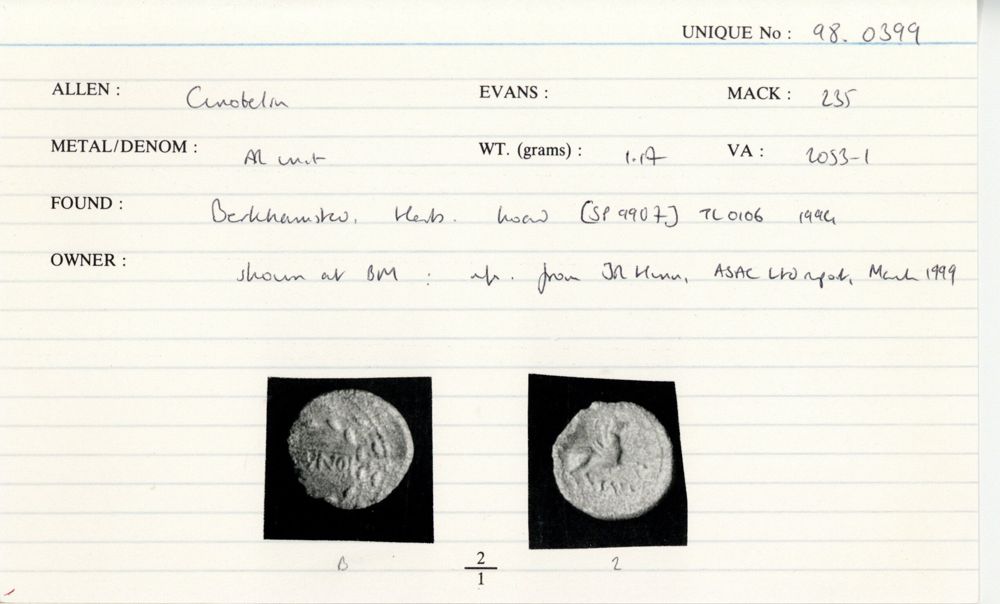 UNIQUE No : 98. 0399
ALLEN : Cunobelin EVANS : MACK : 235
METAL/DENOM : AR unit WT. (grams) : 1.17 VA : 2053-1
FOUND : Berkhamsted, Herts. hoard [SP 9907] TL0106
OWNER : shown at BM : from JR Hunn, ASAC Ltd report, March 1999
B 2/1 2